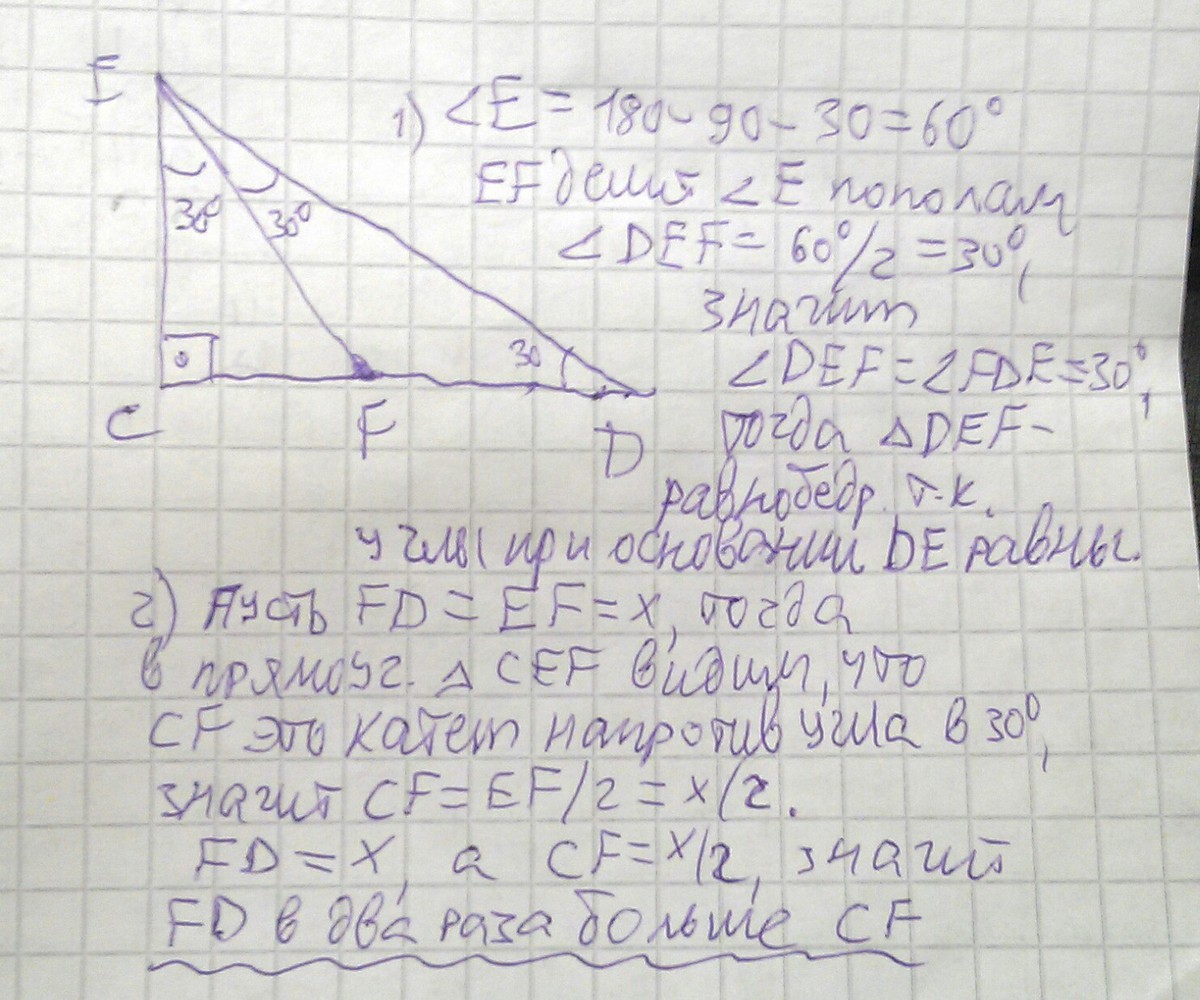 E
1) ∠E = 180 - 90 - 30 = 60°
EF делит ∠E пополам
30° 30°
∠DEF = 60°/2 = 30°,
значит
30
∠DEF = ∠FDE = 30°,
C F D
тогда △DEF -
равнобедр. т.к.
углы при основании DE равны.
2) Пусть FD = EF = x, тогда
в прямоуг. △ CEF видим, что
CF это катет напротив угла в 30°,
значит CF = EF/2 = x/2.
FD = x, а CF = x/2, значит
FD в два раза больше CF